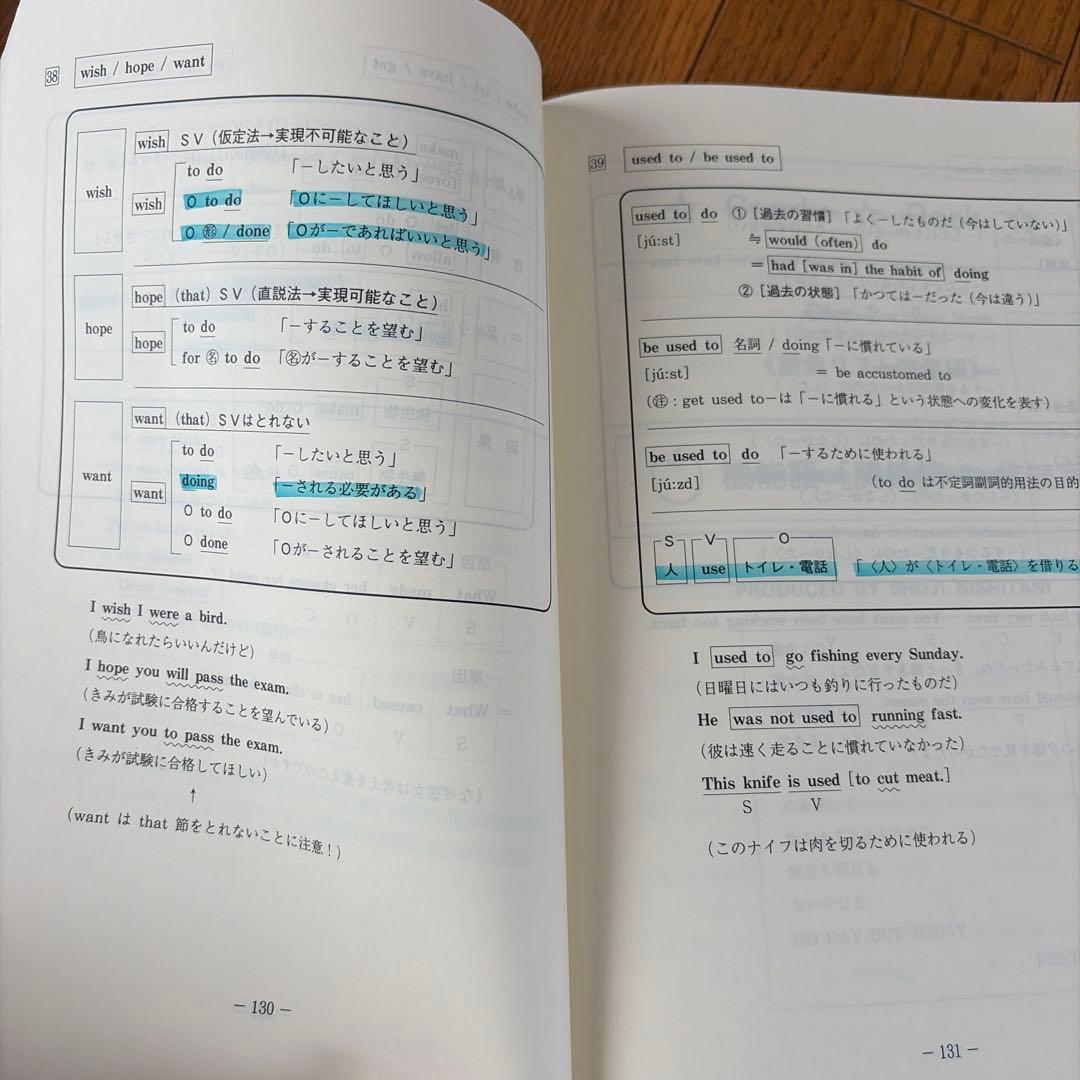 38 wish / hope / want
wish
wish SV（仮定法→実現不可能なこと）
wish
to do 「－したいと思う」
O to do 「Oに－してほしいと思う」
O 形 / done 「Oが－であればいいと思う」
hope
hope (that) SV（直説法→実現可能なこと）
hope
to do 「－することを望む」
for 名 to do 「名が－することを望む」
want
want (that) SVはとれない
want
to do 「－したいと思う」
doing 「－される必要がある」
O to do 「Oに－してほしいと思う」
O done 「Oが－されることを望む」
I wish I were a bird.
（鳥になれたらいいんだけど）
I hope you will pass the exam.
（きみが試験に合格することを望んでいる）
I want you to pass the exam.
（きみが試験に合格してほしい）
↑
（want は that 節をとれないことに注意！）
－130－
39 used to / be used to
used to do ①［過去の習慣］「よく－したものだ（今はしていない）」
[júːst] ≒ would (often) do
= had [was in] the habit of doing
②［過去の状態］「かつては－だった（今は違う）」
be used to 名詞 / doing「－に慣れている」
[júːst] = be accustomed to
（注：get used to－は「－に慣れる」という状態への変化を表す）
be used to do 「－するために使われる」
[júːzd] （to do は不定詞副詞的用法の目的
S V O
人 use トイレ・電話 「〈人〉が〈トイレ・電話〉を借りる
I used to go fishing every Sunday.
（日曜日にはいつも釣りに行ったものだ）
He was not used to running fast.
（彼は速く走ることに慣れていなかった）
This knife is used [to cut meat.]
S V
（このナイフは肉を切るために使われる）
－131－